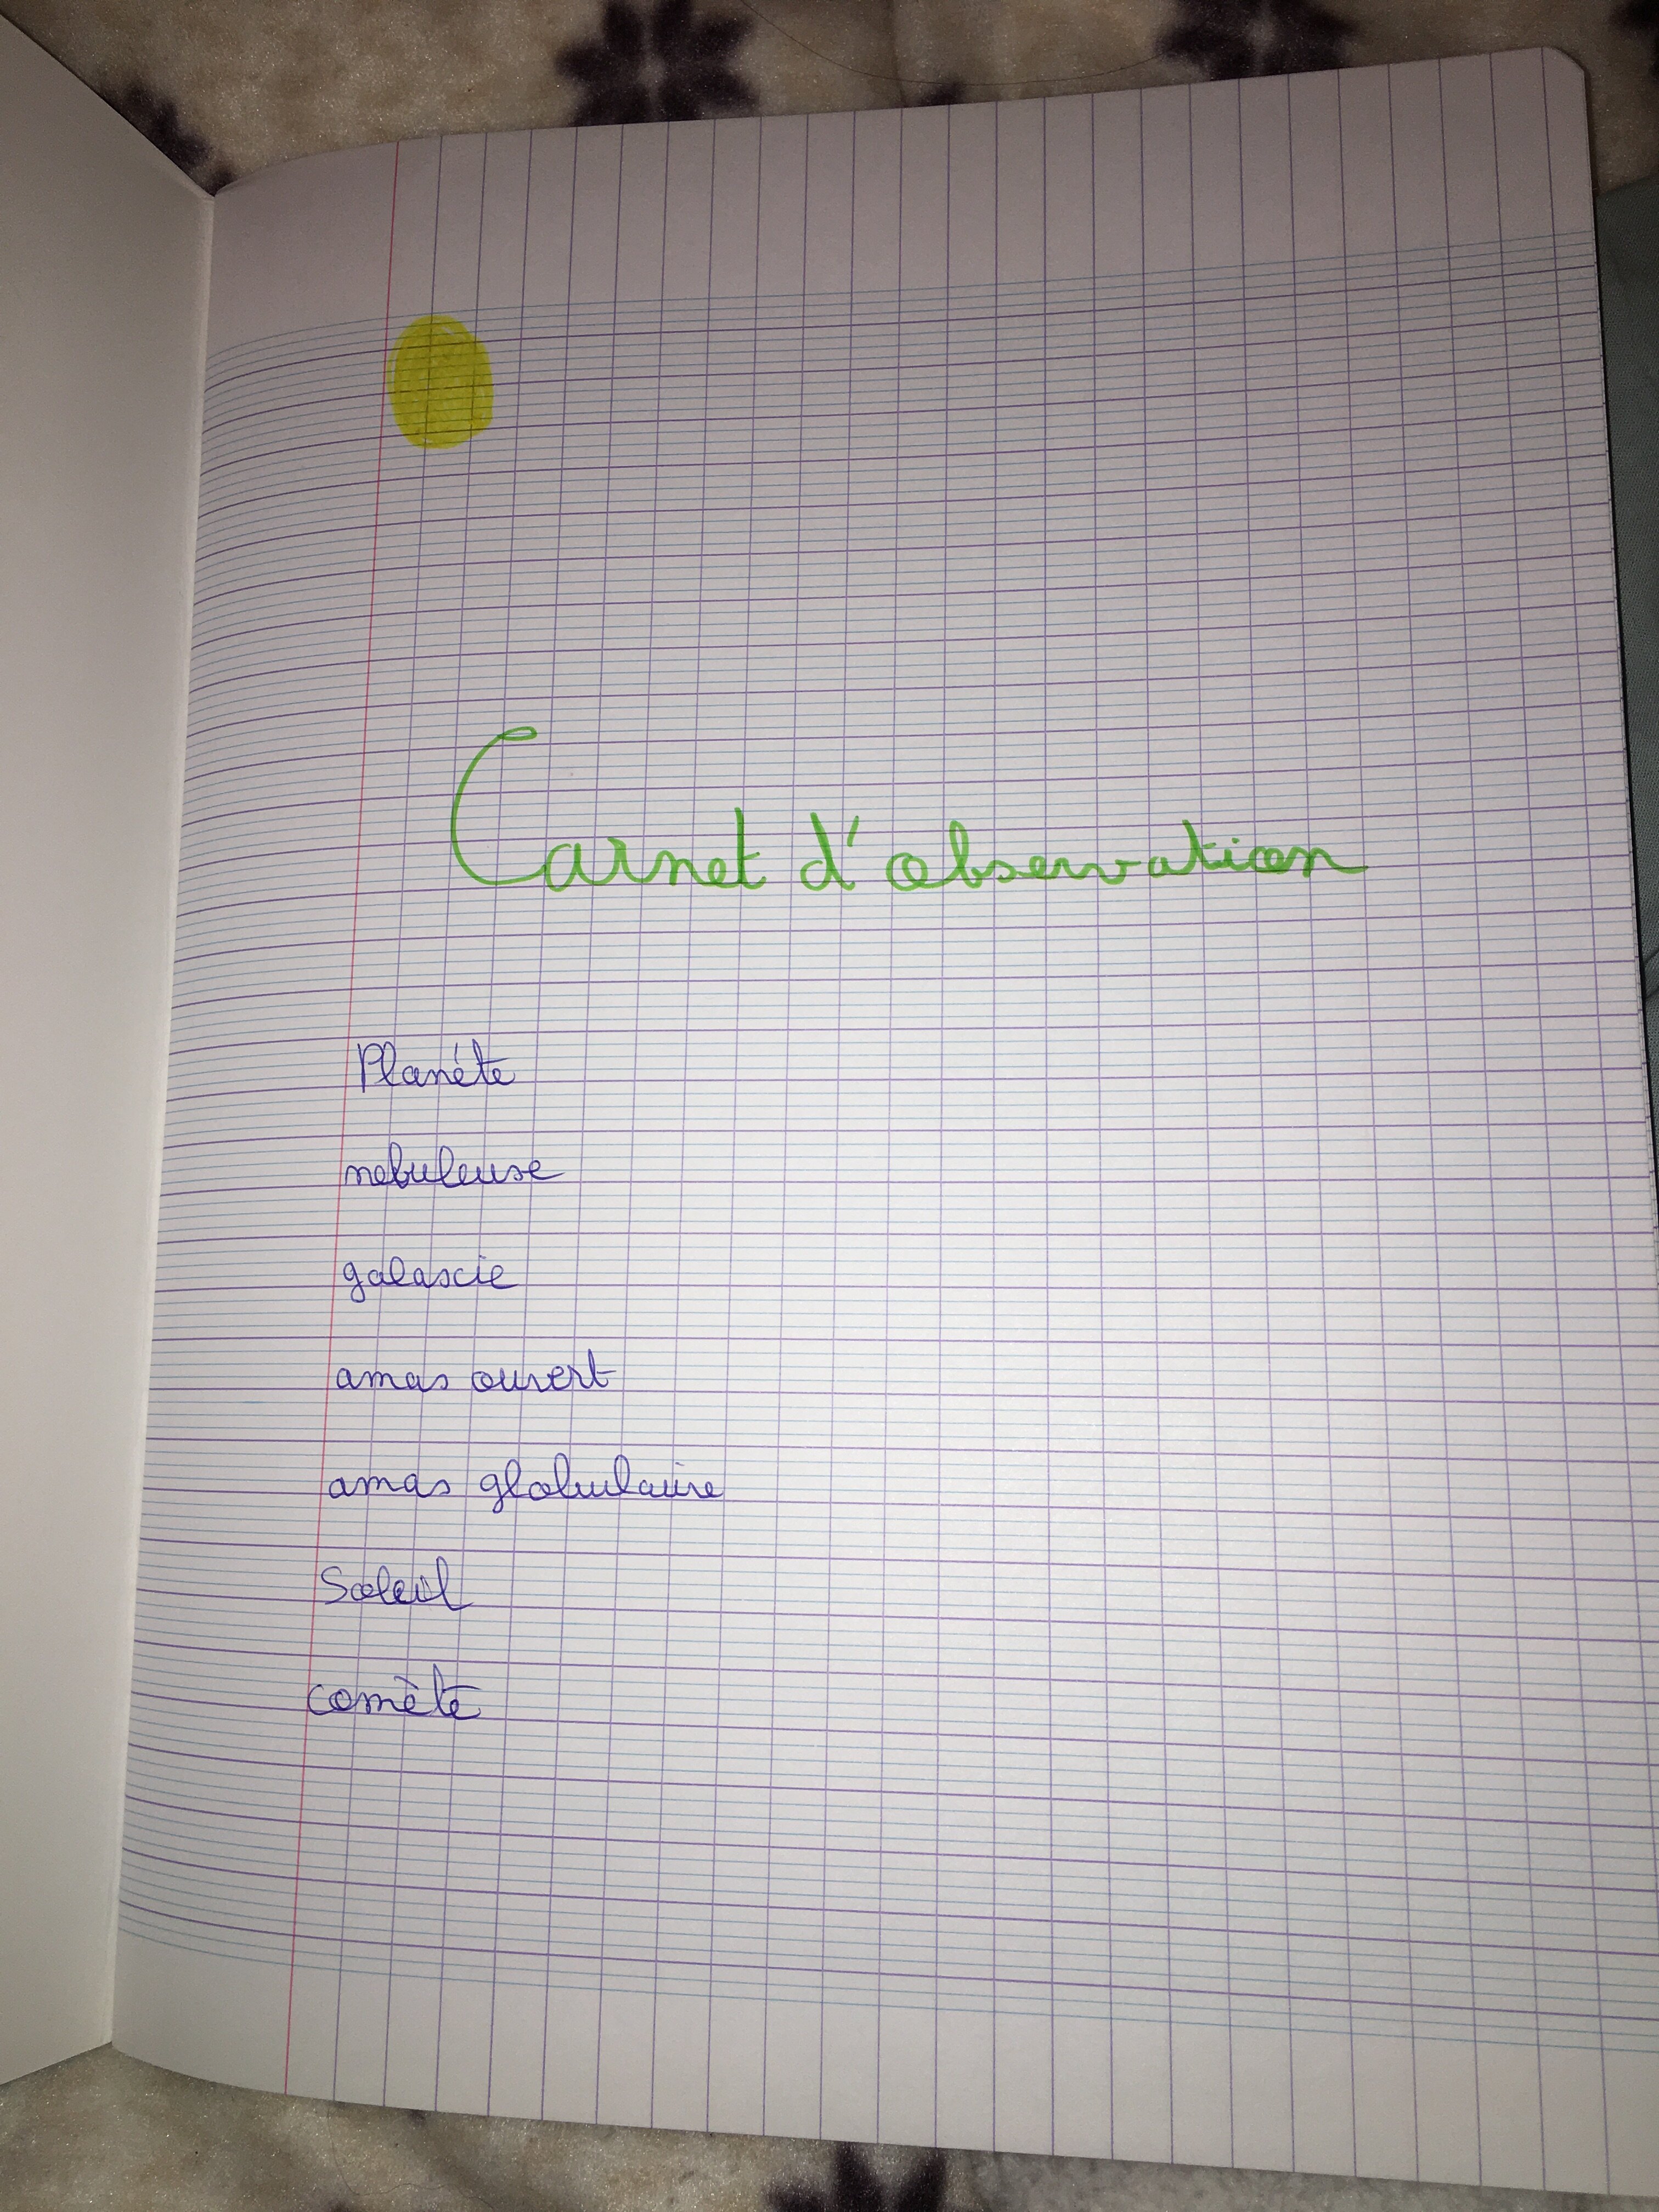 Carnet d'observation
Planéte
nebuleuse
galaxie
amas ouvert
amas globulaire
Soleil
comète